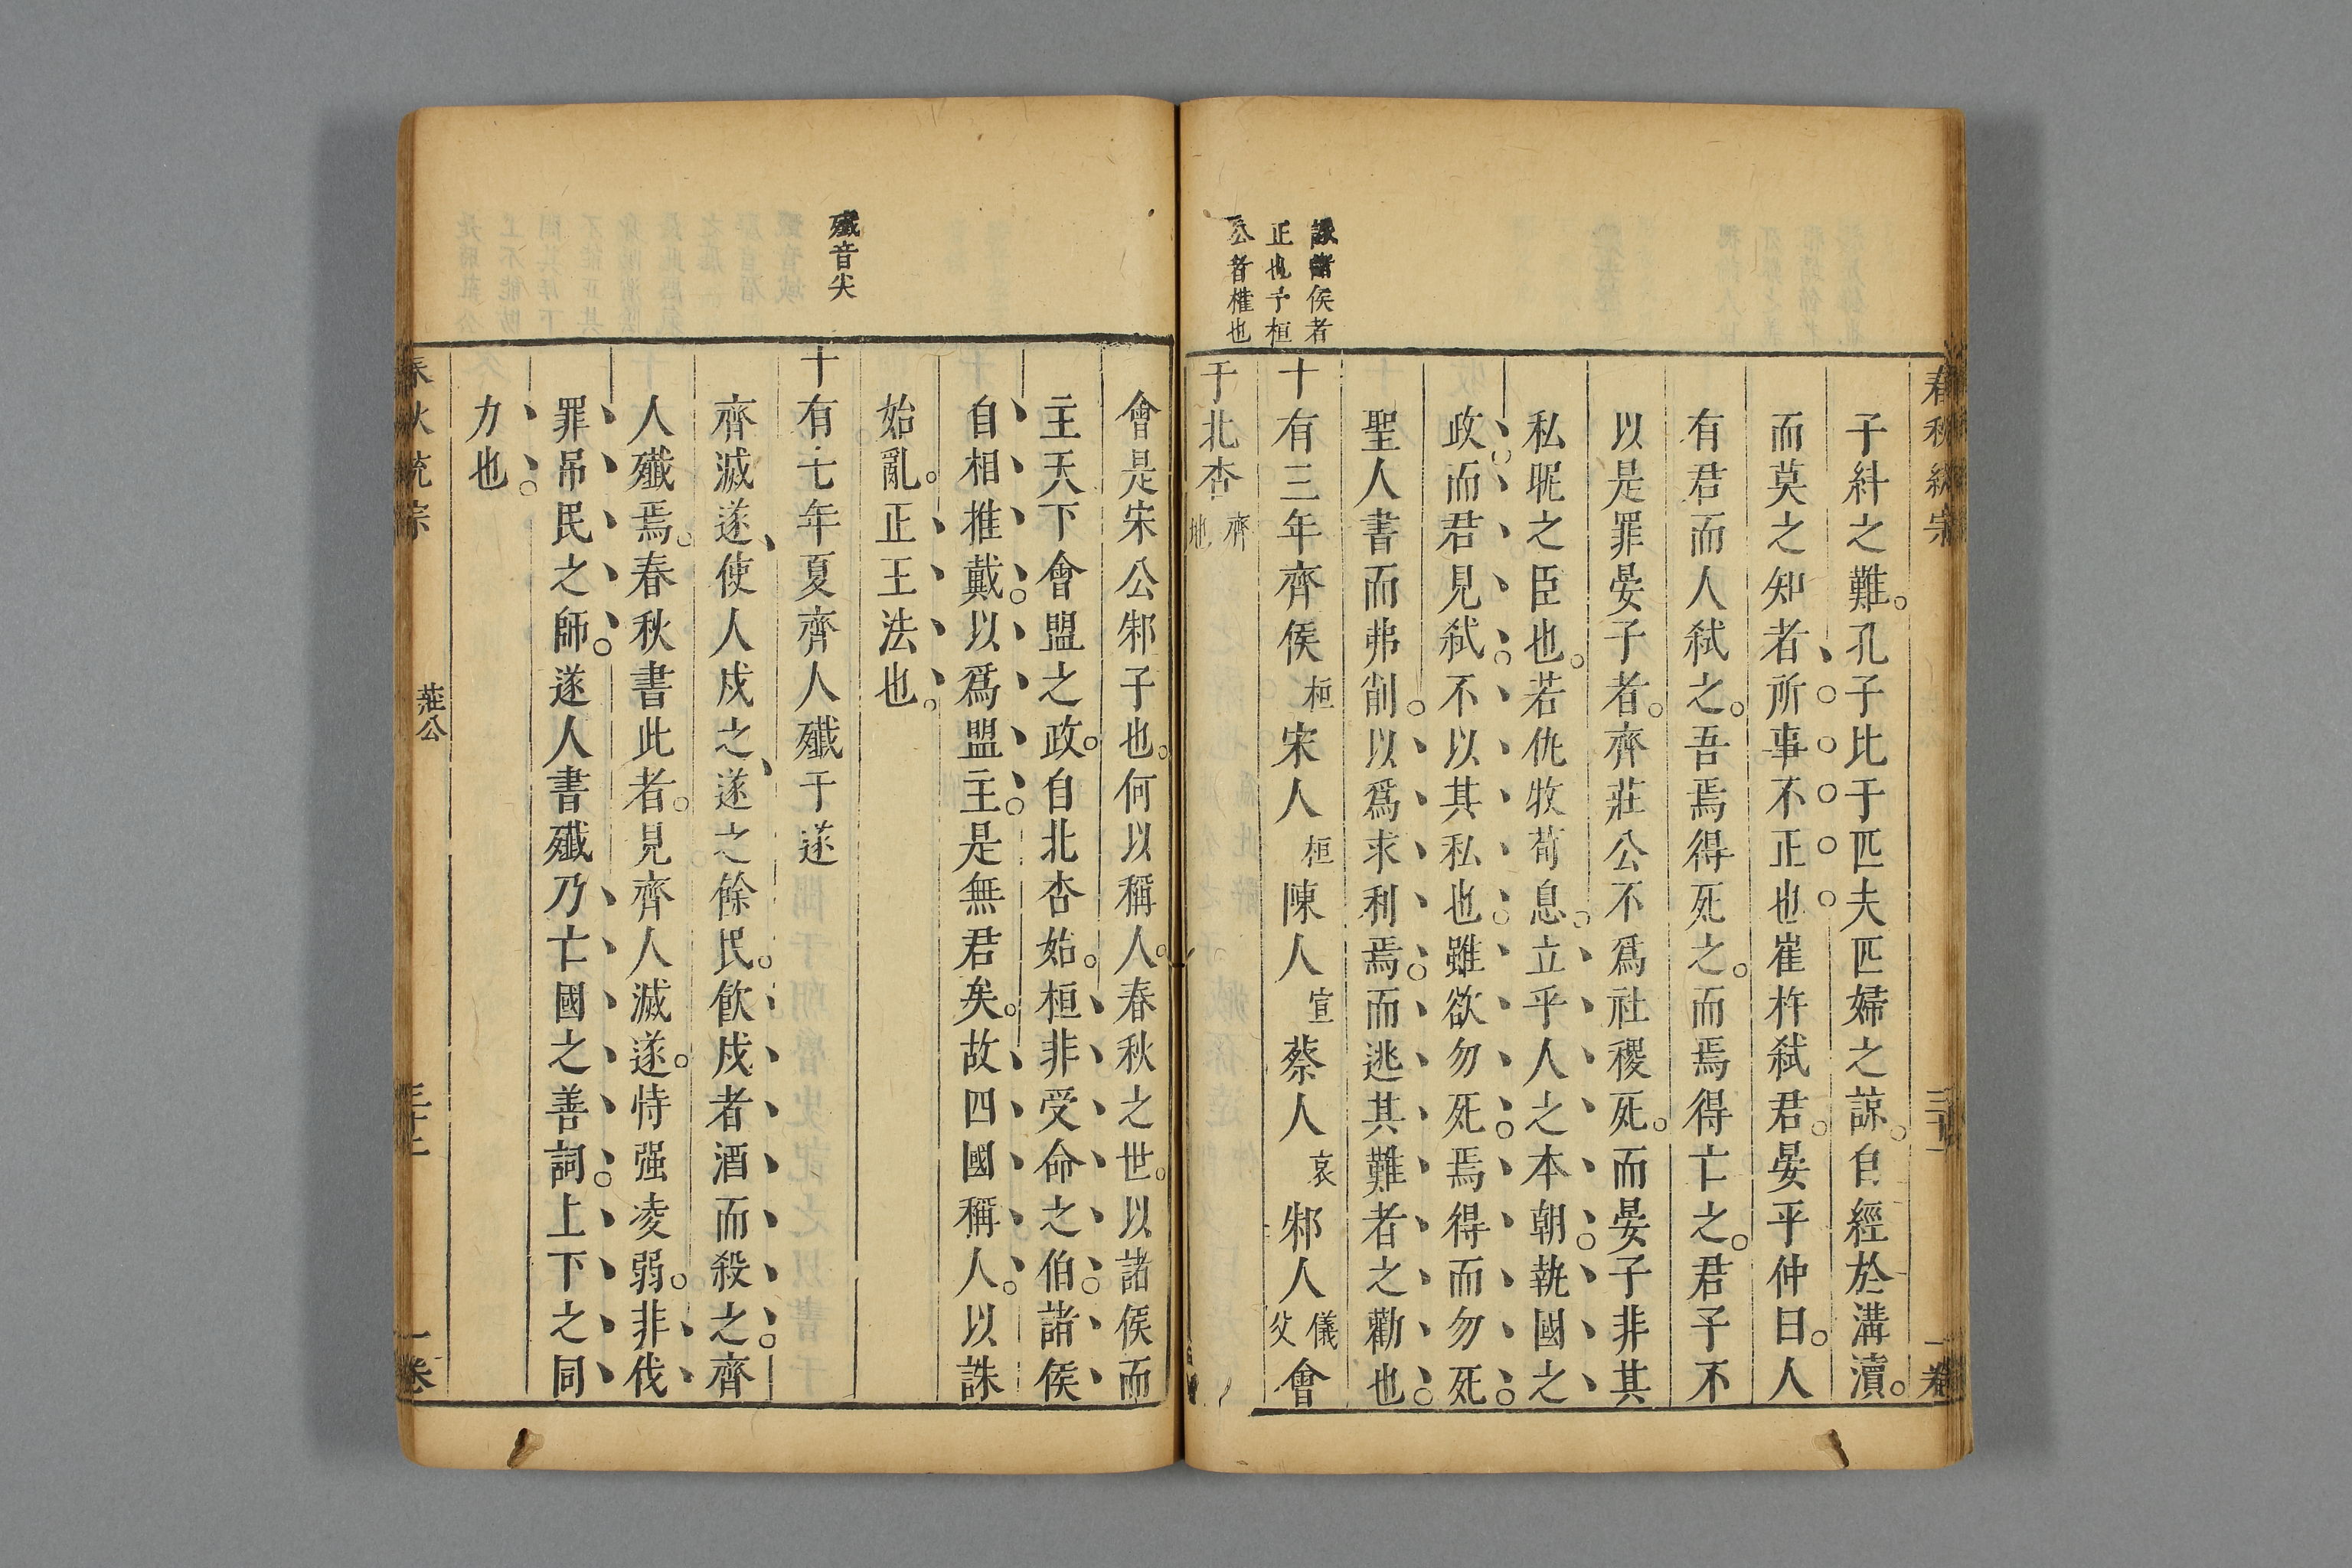 春秋統宗
三十一
一卷
子糾之難。孔子比于匹夫匹婦之諒。自經於溝瀆。
而莫之知者所事不正也崔杵弑君。晏平仲曰。人
有君而人弑之。吾焉得死之。而焉得亡之。君子不
以是罪晏子者。齊莊公不爲社稷死。而晏子非其
私昵之臣也。若仇牧荀息。立乎人之本朝。執國之
政。而君見弑。不以其私也。雖欲勿死。焉得而勿死。
聖人書而弗削。以爲求利焉。而逃其難者之勸也。
誅諸侯者
正也予桓
公者權也
十有三年齊侯桓宋人桓陳人宣蔡人哀邾人儀父會
于北杏齊地
會是宋公邾子也。何以稱人。春秋之世。以諸侯而
主天下會盟之政。自北杏始。桓非受命之伯。諸侯
自相推戴。以爲盟主。是無君矣。故四國稱人。以誅
始亂。正王法也。
殲音尖
十有七年夏齊人殲于遂
齊滅遂使人戍之遂之餘民。飲戍者酒而殺之。齊
人殲焉。春秋書此者。見齊人滅遂。恃强凌弱。非伐
罪吊民之師。遂人書殲乃亡國之善詞。上下之同
力也。
春秋統宗
莊公
三十二
一卷